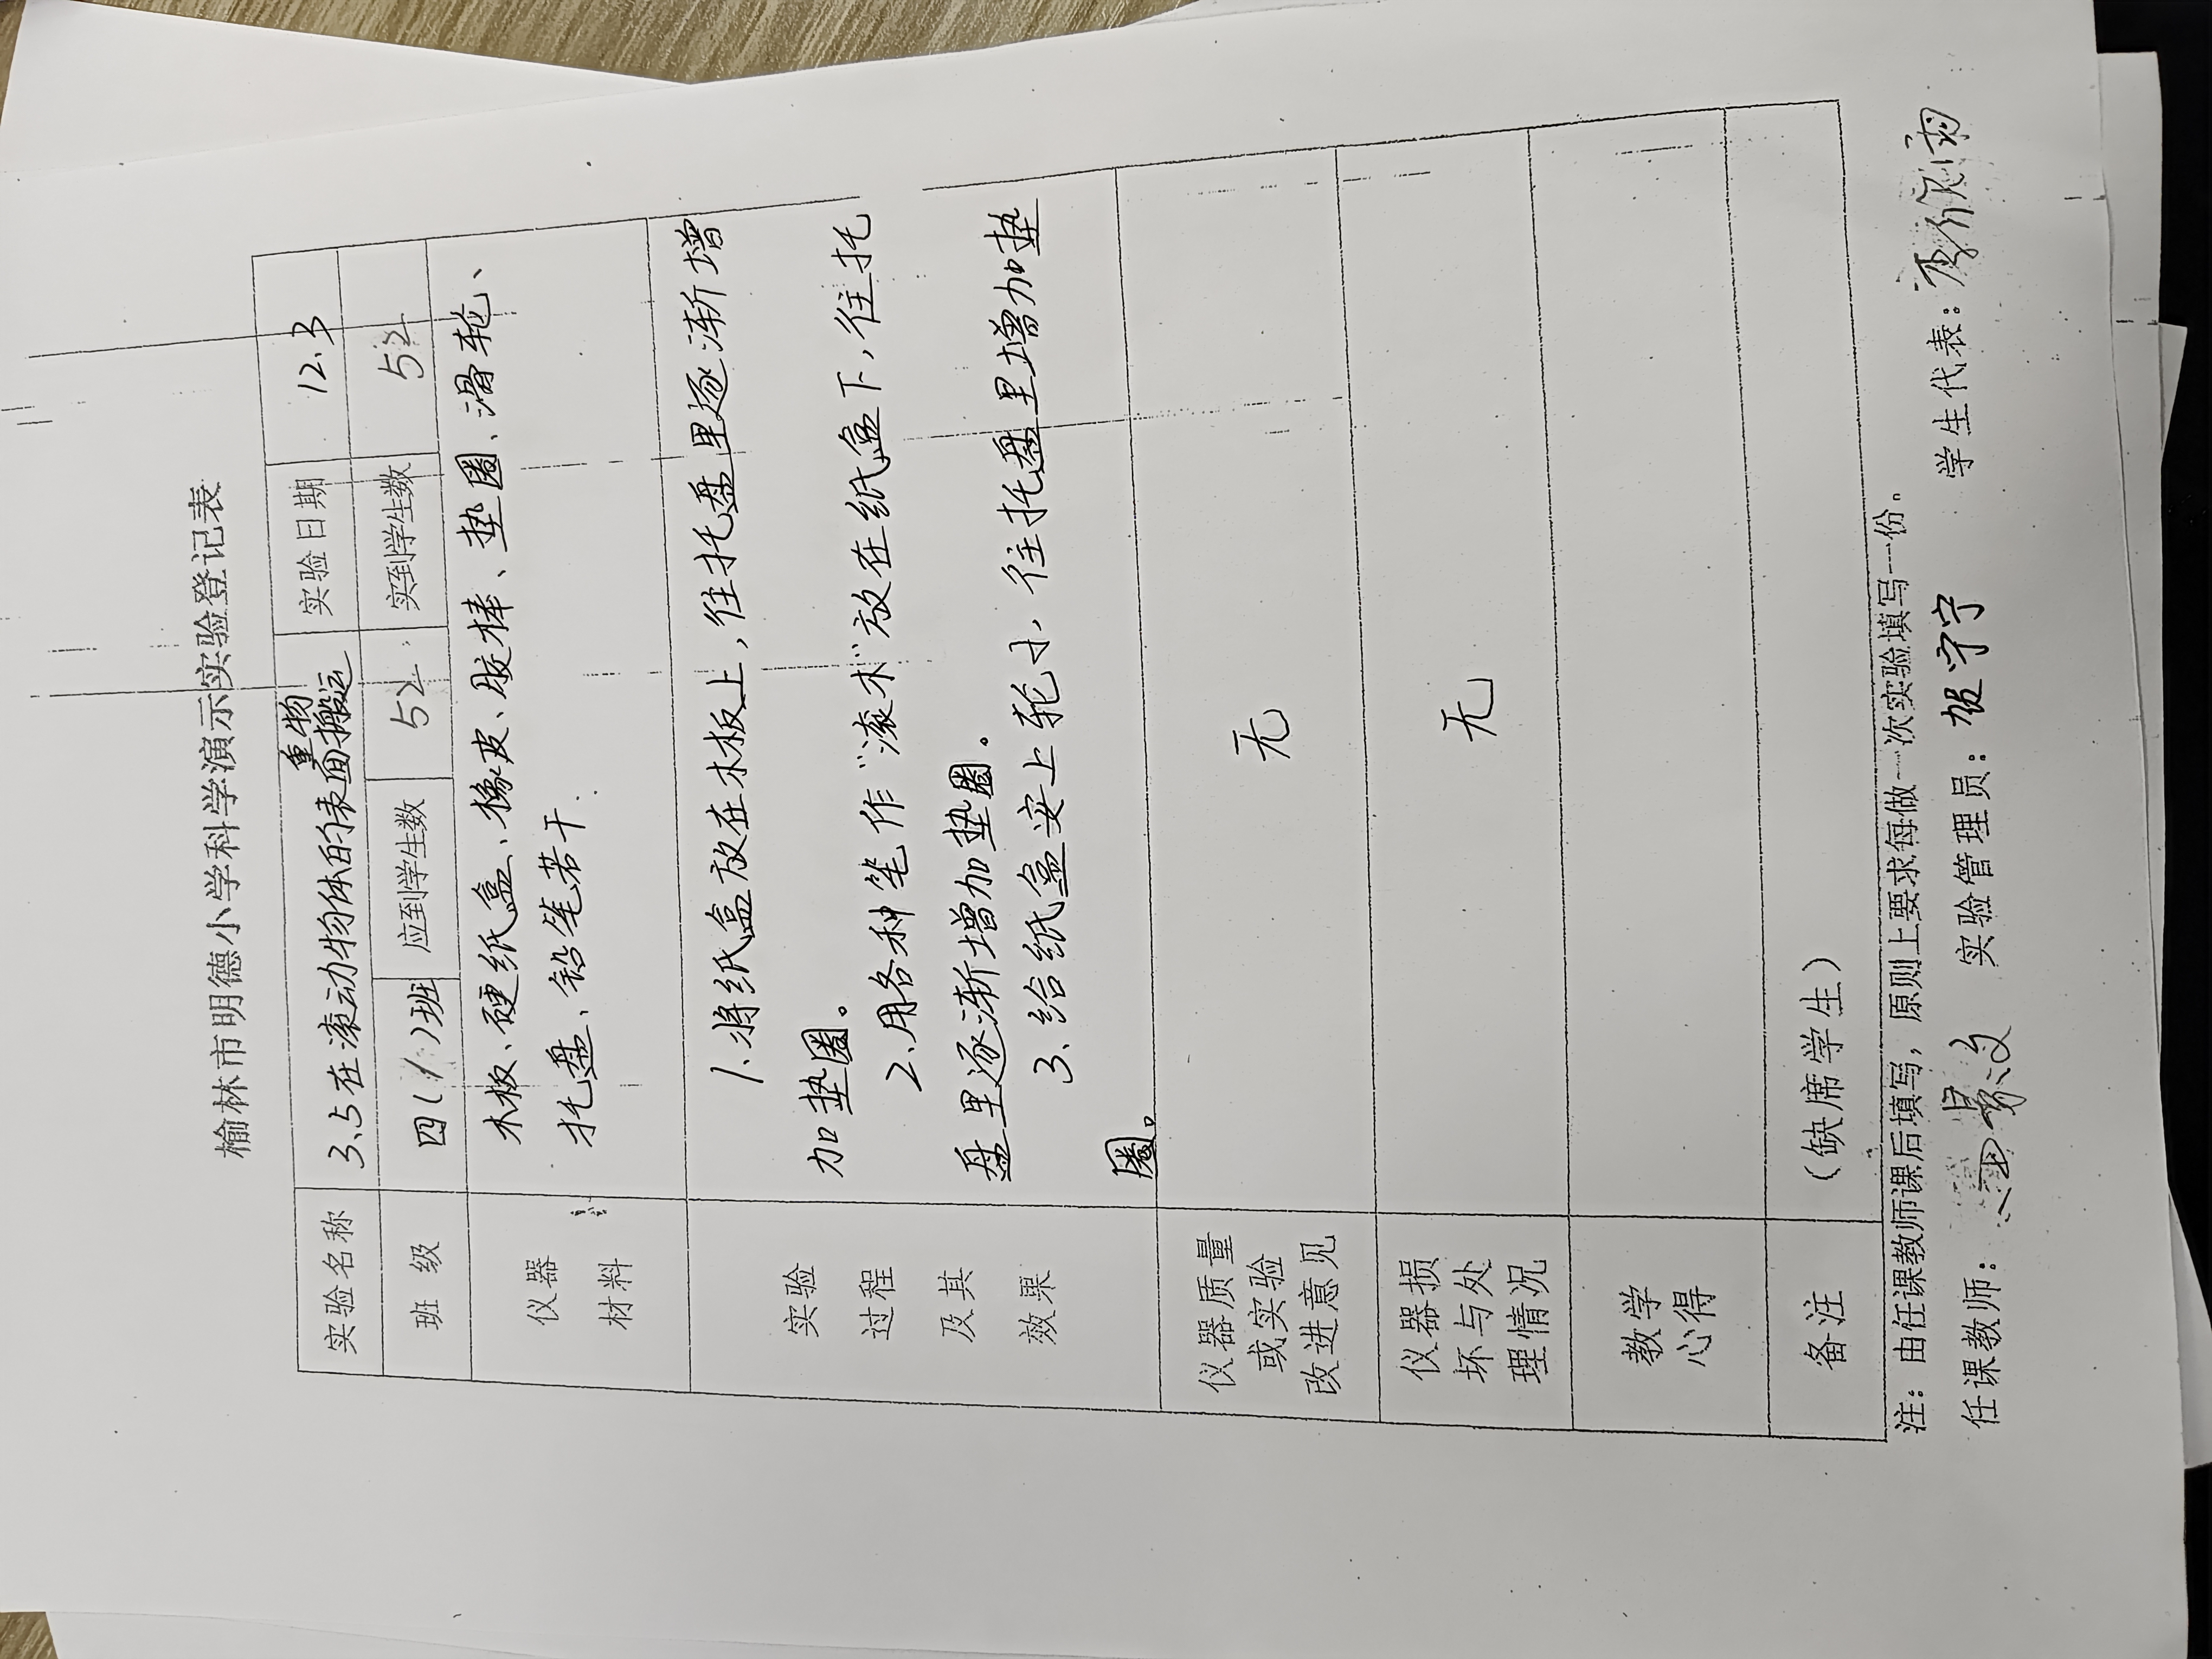 榆林市明德小学科学演示实验登记表
实验名称 3.5在滚动物体的表面搬运重物 实验日期 12.3
班 级 四(1)班 应到学生数 52 实到学生数 52
仪器材料 木板、硬纸盒、橡皮、胶棒、垫圈、滑轮、
托盘、铅笔若干
实验过程及其效果 1.将纸盒放在木板上,往托盘里逐渐增
加垫圈。
2.用各种笔作"滚木"放在纸盒下,往托
盘里逐渐增加垫圈。
3.给纸盒安上轮子,往托盘里增加垫
圈。
仪器质量
或实验
改进意见 无
仪器损
坏与处
理情况 无
教学
心得
备注 (缺席学生)
注:由任课教师课后填写,原则上要求每做一次实验填写一份。
任课教师: 实验管理员: 学生代表: